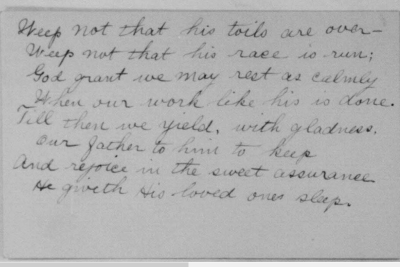 Weep not that his toils are over-
Weep not that his race is run;
God grant we may rest as calmly
When our work like his is done.
Till then we yield, with gladness,
Our father to him to keep
And rejoice in the sweet assurance
He giveth His loved ones sleep.